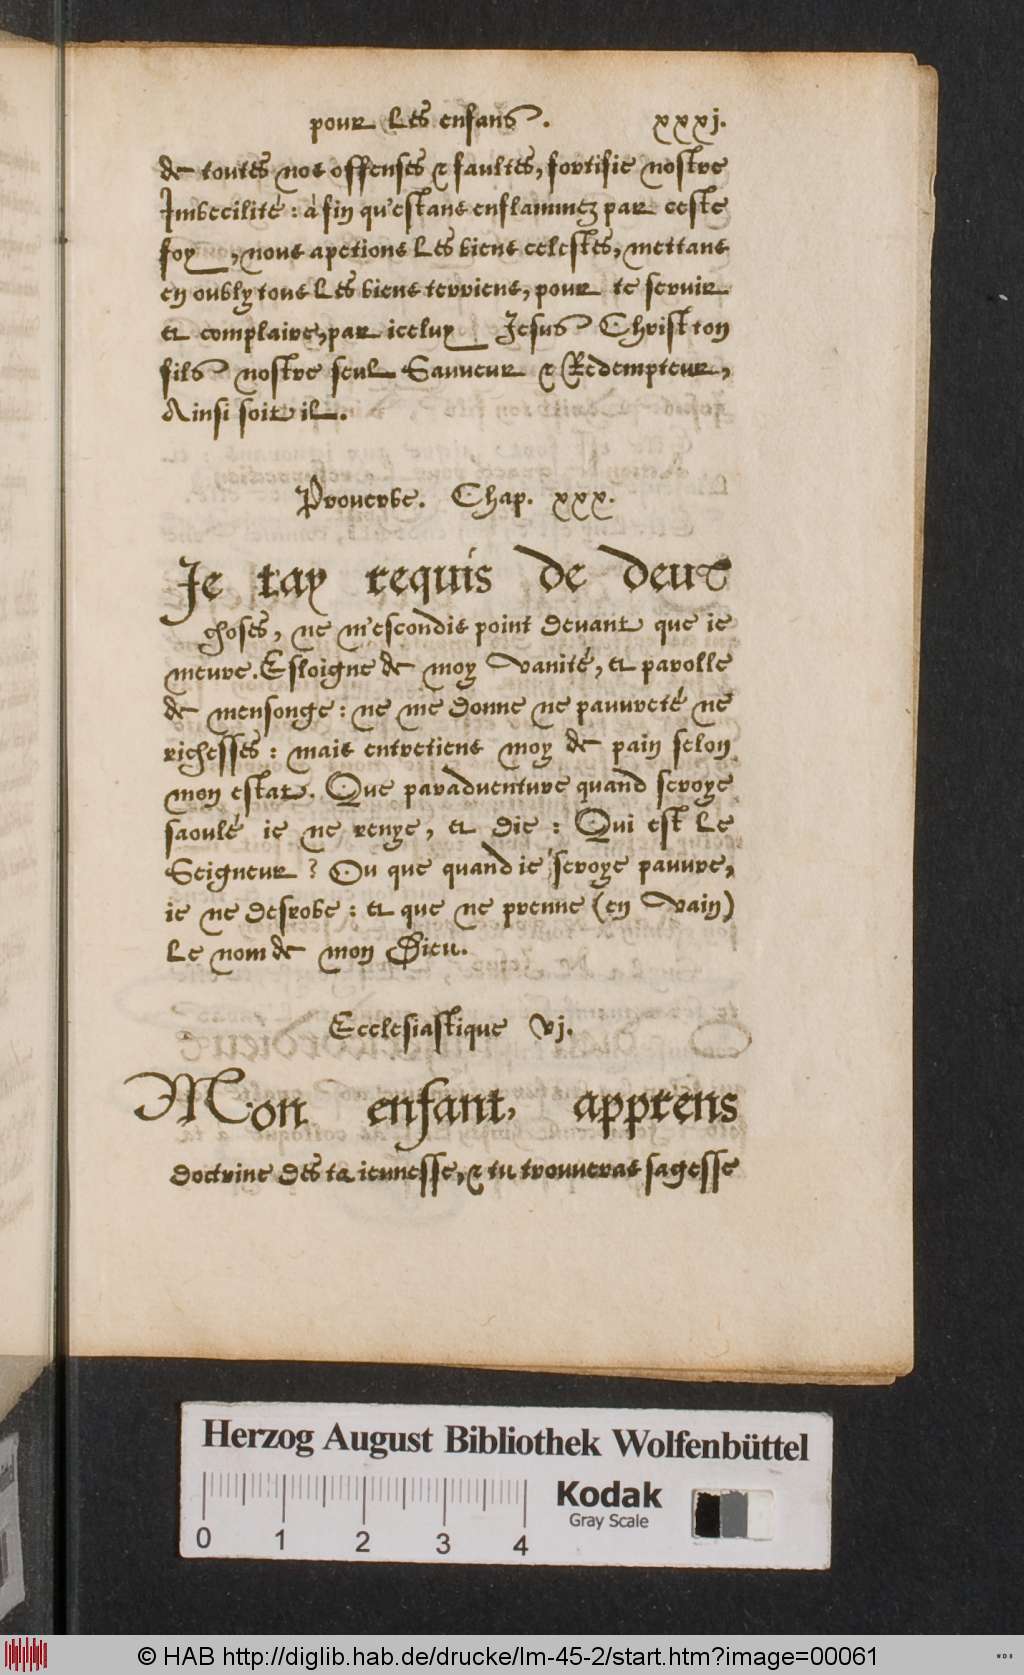 pour les enfans. xxxj.
de toutes nos offenses & faultes, fortifie nostre
Imbecilité: à fin qu'estans enflammez par ceste
foy, nous apetions les biens celestes, mettans
en oubly tous les biens terriens, pour te seruir
et complaire, par iceluy Jesus Christ ton
fils nostre seul Sauueur & Redempteur,
Ainsi soit il.
Prouerbe. Chap. xxx.
Je tay requis de deux
choses, ne m'escondis point deuant que ie
meure. Esloigne de moy vanité, et parolle
de mensonge: ne me donne ne pauureté ne
richesses: mais entretiens moy de pain selon
mon estat. Que paraduenture quand seroye
saoulé ie ne renye, et die: Qui est le
Seigneur? Ou que quand ie seroye pauure,
ie ne desrobe: et que ne prenne (en vain)
le nom de mon Dieu.
Ecclesiastique vj.
Mon enfant, apprens
doctrine des ta ieunesse, & tu trouueras sagesse
Herzog August Bibliothek Wolfenbüttel
Kodak
Gray Scale
0 1 2 3 4
© HAB http://diglib.hab.de/drucke/lm-45-2/start.htm?image=00061